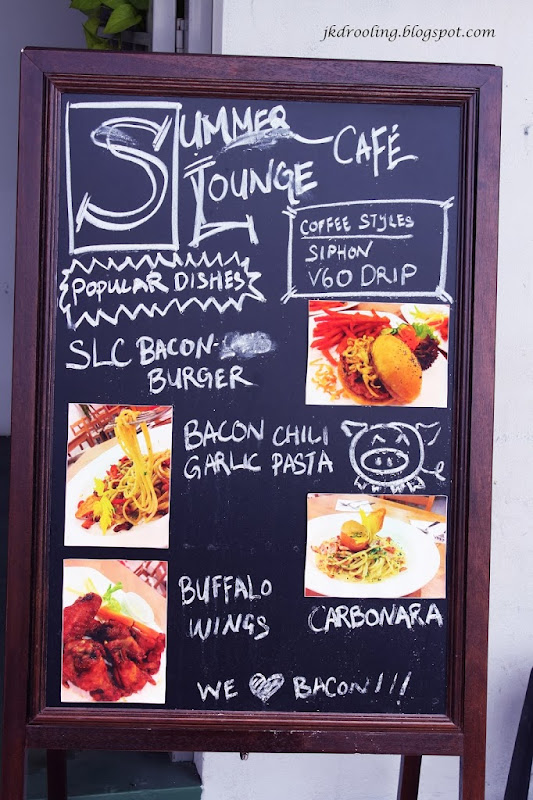 jkdrooling.blogspot.com
SUMMER
LOUNGE CAFÉ
COFFEE STYLES
SIPHON
V60 DRIP
POPULAR DISHES
SLC BACON-
BURGER
BACON CHILI
GARLIC PASTA
BUFFALO
WINGS
CARBONARA
WE ♥ BACON!!!